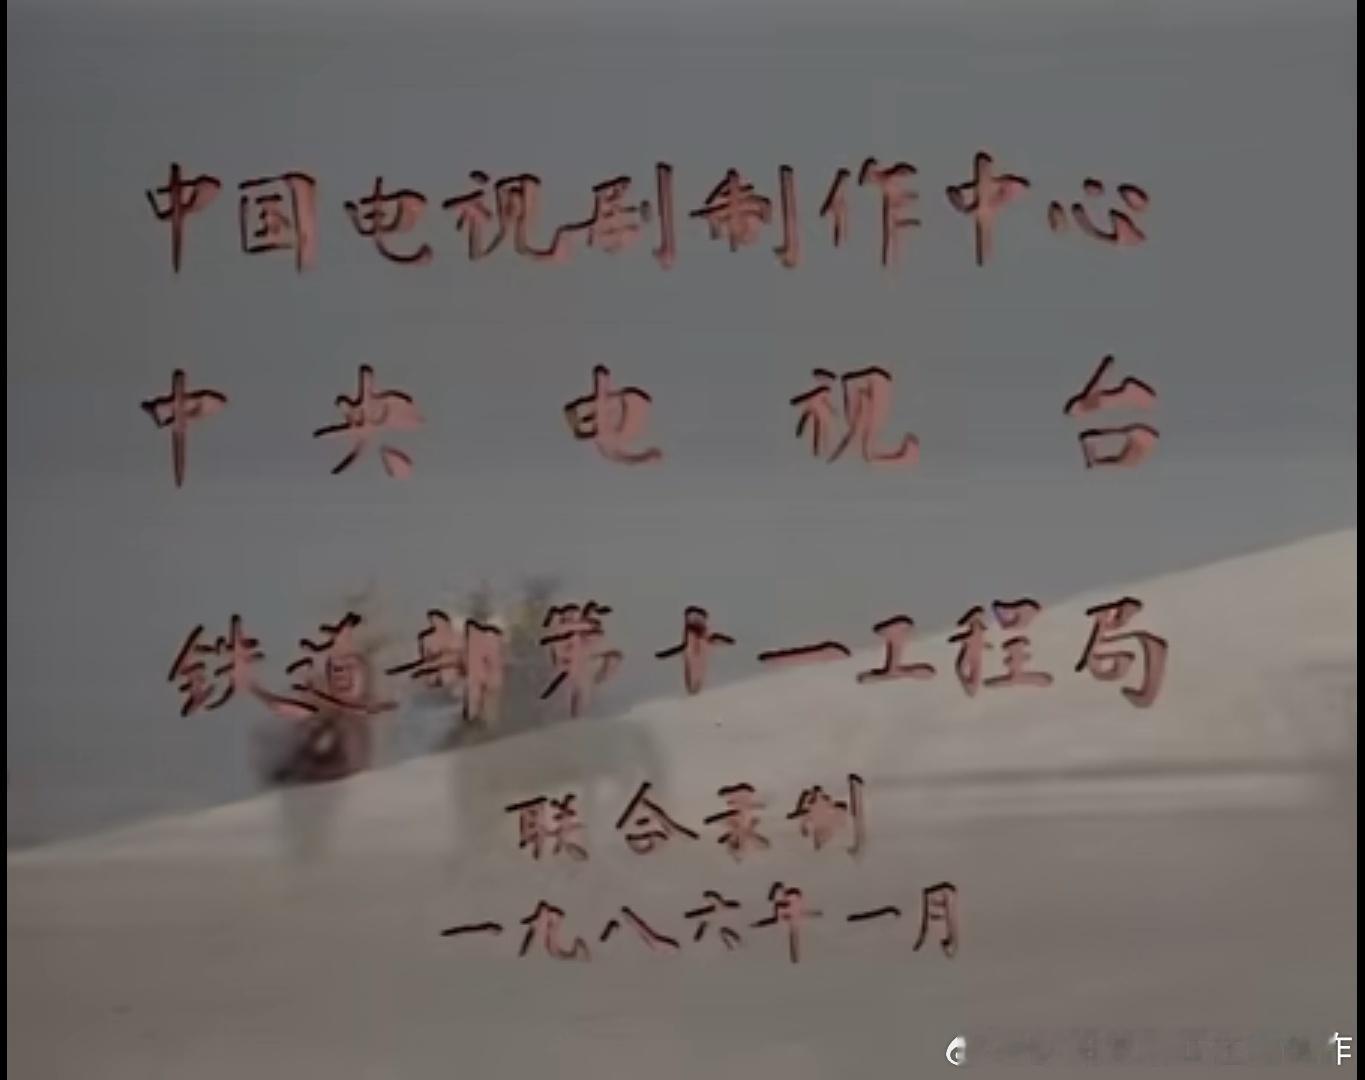 中国电视剧制作中心
中央电视台
铁道部第十一工程局
联合录制
一九八六年一月
作